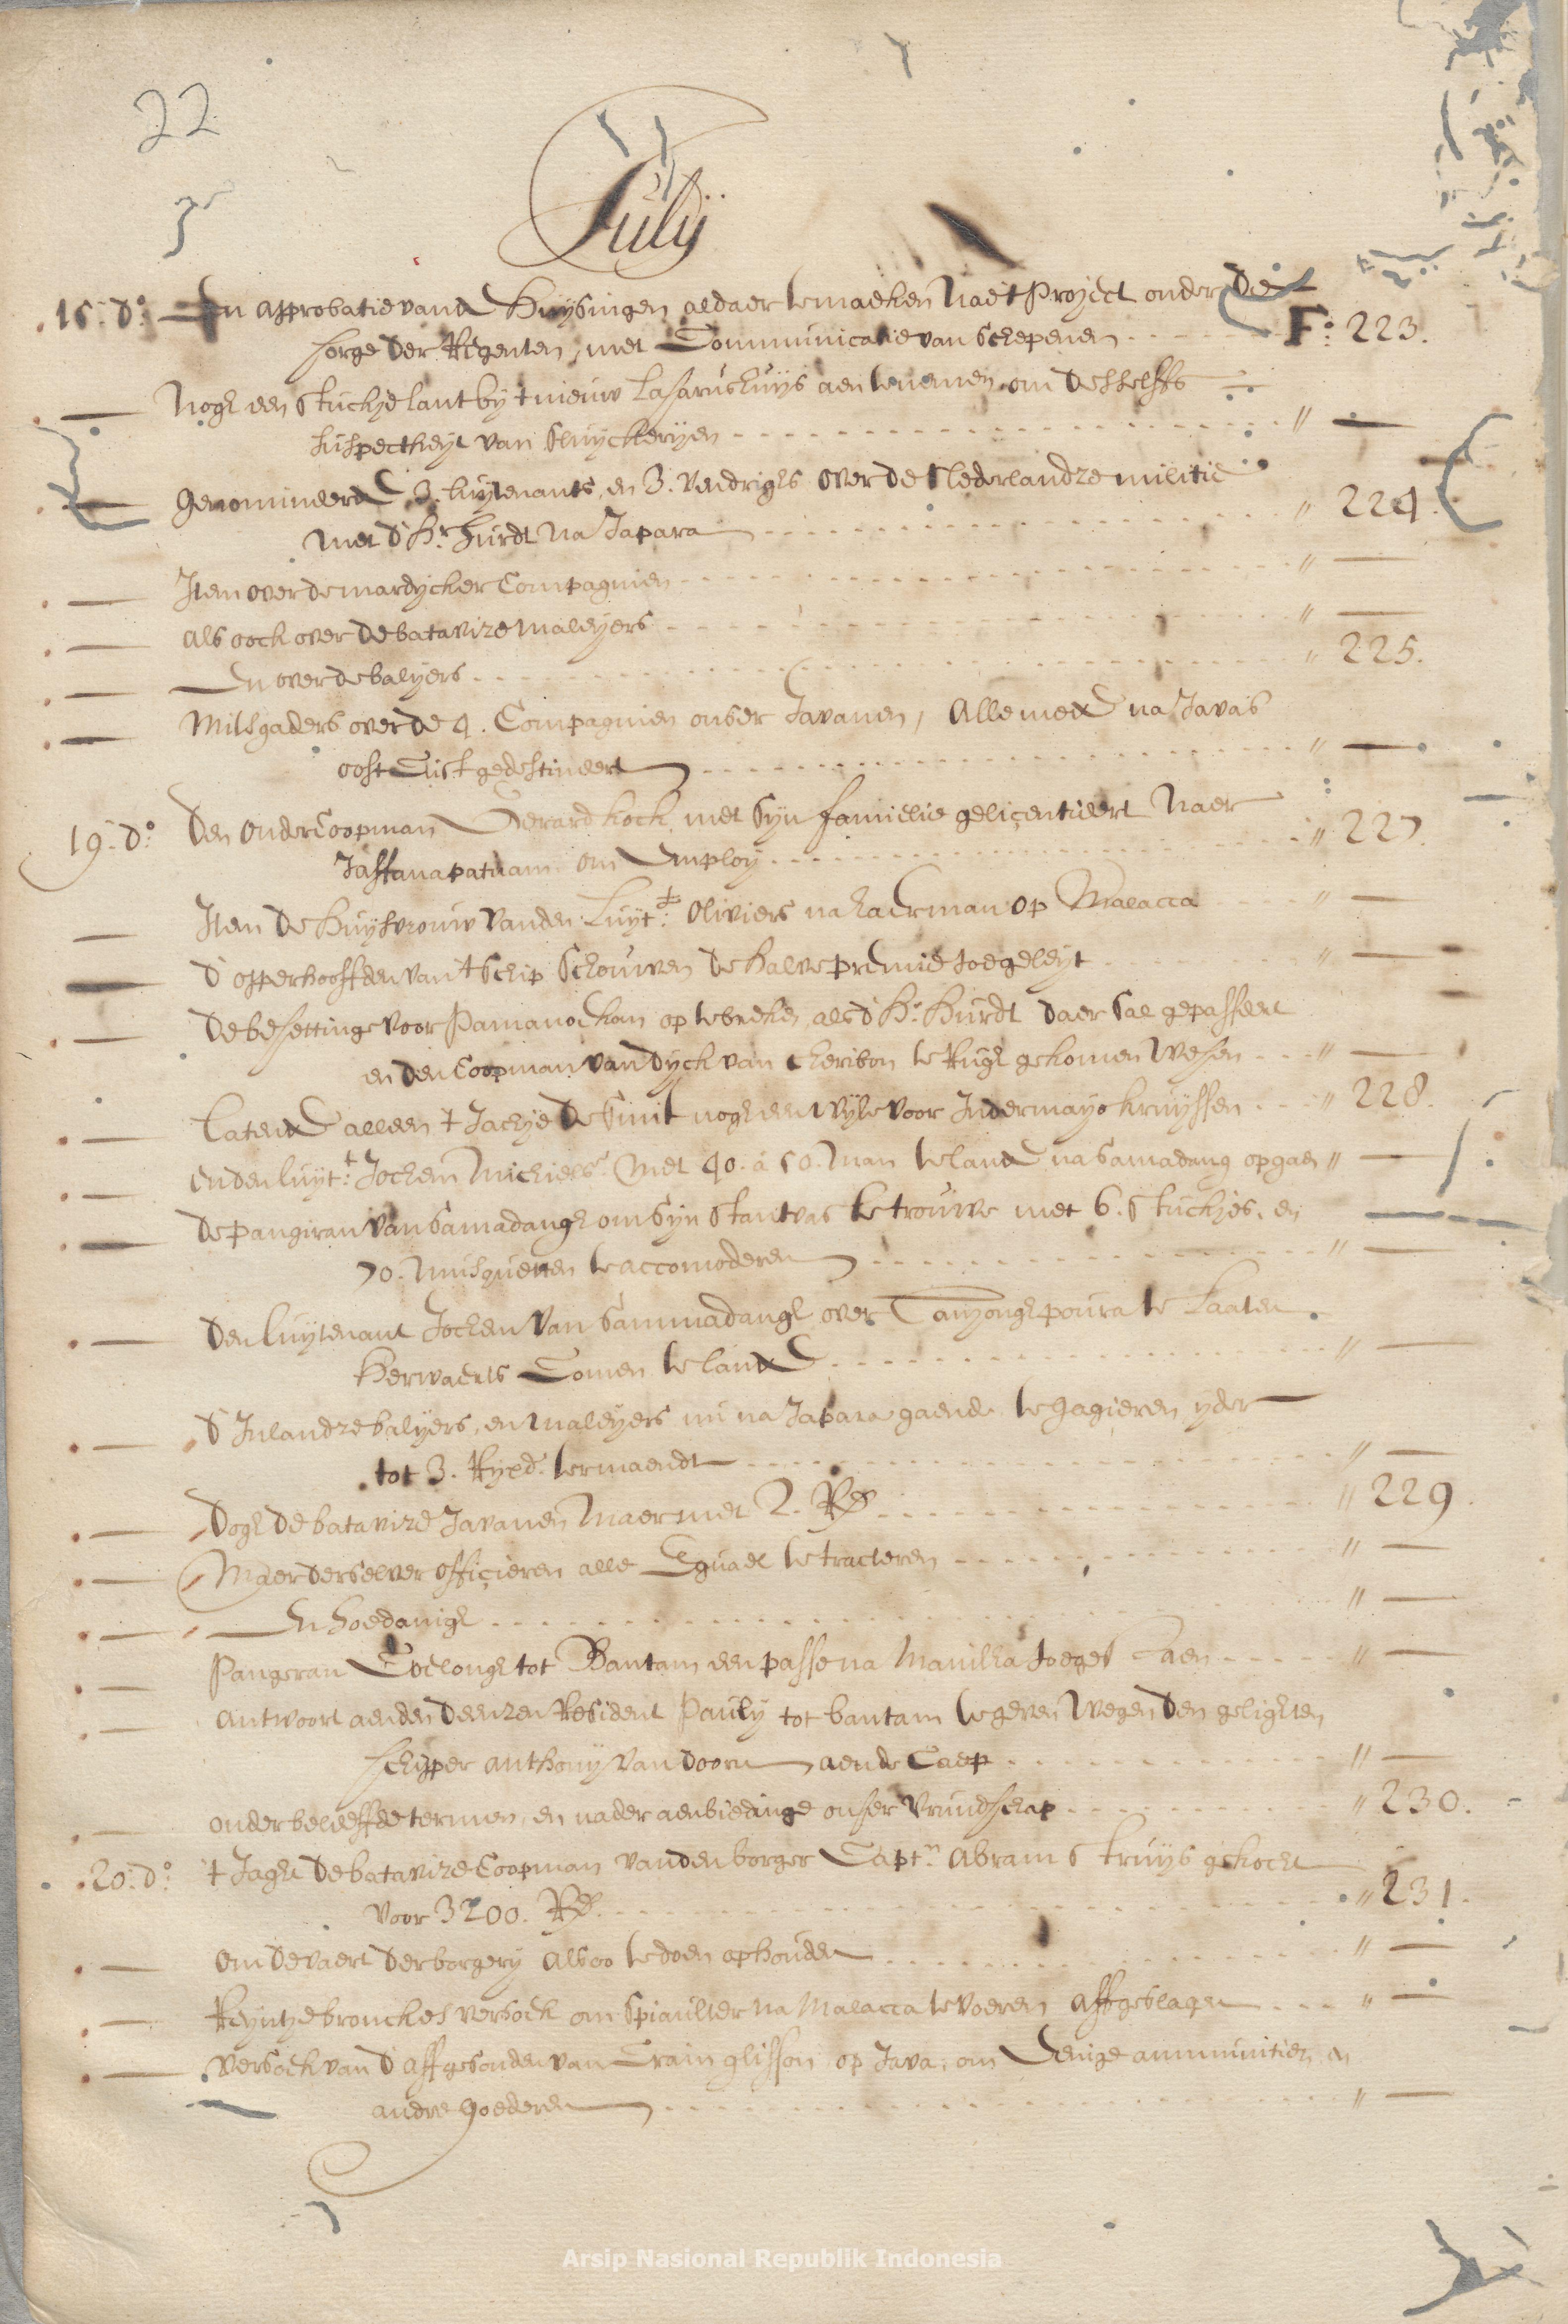 22
Julij
15. d.o En approbatie vand Huysingen aldaer te maeken na 't Project onder de F.o 223.
sorge der Regenten, met Communicatie van Schepenen
Nogh een stuckje lant by 't nieuw Lasarushuijs aen te nemen om desselffs
suspectheyt van sluyckeryen " —
Genomineerd 3. luytenants, en 3. vendrighs over de Nederlandze militie
met d'Hr. Hurdt na Japara " 224.
Item over de mardycker Compagnien " —
als oock over de batavize maleyers " —
En over de balyers " 225.
Mitsgaders over de 4. Compagnien onser Javanen, Alle med na Java's
oost Cust gedestineert " —
19. d.o Den ondercoopman Gerard kock met syn familie gelicentieert naer
Jaffanapatnam om Employ " 227.
Item de huysvrouw van den Luyt.t Oliviers na haer man op Malacca " —
d'opperhooffden van 't schip Schouwen de halve premie toegeleyt " —
de besettinge voor Pamanockan op te breken, als d'Hr. Hurdt daer sal gepasseert
en den Coopman van Dyck van Cheribon te rugh gekomen wesen " —
Latend alleen 't Jachje de Smit nogh een wyle voor Indermayo kruyssen " 228.
en den luyt.t Jochem Michiels.z met 40. a 50. man te land na Samadang opgaen " —
de pangiran van Samadangh om syn stant vas te trouwe met 6. stuckjes, en
70. musquetten te accomoderen " —
den luytenant Jochem van Sammadangh over Tanjonghpoura te laaten
herwaerts Comen te land " —
d'Inlandze balyers, en maleyers nu na Japara gaende te gagieren yder
tot 3. Ryxd. ter maendt " —
dogh de batavize Javanen maer met 2. Rds " 229.
Maer derselver officieren alle Eguael te tracteren " —
En hoedanigh " —
Pangeran Codlongh tot Bantam een passe na Manilha toegestaen " —
Antwoort aen den deenzen Resident Pauly tot bantam te geven wegen den gelighten
schipper anthony van doorn aen de Caep " —
onder beleeffde termen, en nader aenbiedinge onser vrundschap " 230.
20. d.o 't Jaght de batavize Coopman van den borger Capt.n Abram Struys gekocht
voor 3200. Rds. " 231.
om de vaert der borgery alsoo te doen ophouden " —
Reyntje bronckes versoek om spiaulter na Malacca te voeren affgeslagen " —
versoek van d'affgesonden van Crain glisson op Java, om Eenige ammunitien, en
andre goederen " —
Arsip Nasional Republik Indonesia